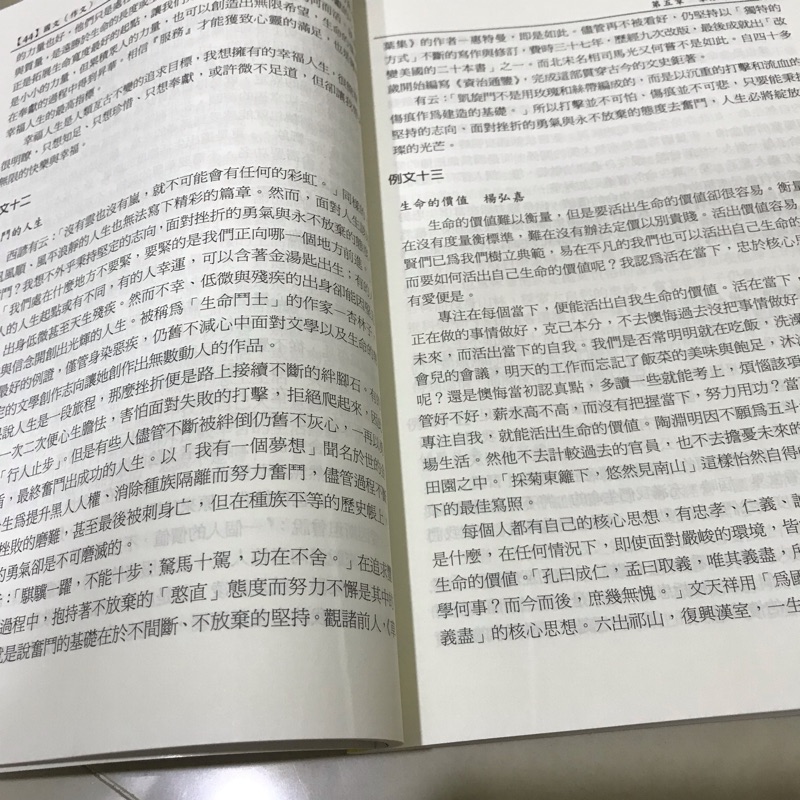 【44】國文（作文）
的力量也好，他們只是處
與質量，是遠勝於生命的長度或
正是拓展生命寬度最好的起點，讓我們
是小小的力量，但累積眾人的力量，也可以創造出無限希望，生命的
在奉獻的過程中得到昇華，相信『服務』才能獲致心靈的滿足，也是
幸福人生的最高指標。
幸福人生是人類亙古不變的追求目標，我想擁有的幸福人生，很簡
很明瞭，只想知足、只想珍惜、只想奉獻，或許微不足道，但卻讓我
無限的快樂與幸福。
文十二
鬥的人生
西諺有云：「沒有雲也沒有嵐，就不可能會有任何的彩虹。」同樣
風順、風平浪靜的人生也無法寫下精彩的篇章。然而，面對人生
鬥？我想不外乎秉持堅定的志向，面對挫折的勇氣與永不放棄的態
「我們處在什麼地方不要緊，要緊的是我們正向哪一個地方前進。
人的人生起點或有不同，有的人幸運，可以含著金湯匙出生；有的
出身低微甚至天生殘疾。然而不幸、低微與殘疾的出身卻能因
與信念開創出光輝的人生。被稱為「生命鬥士」的作家—杏林子
最好的例證，儘管身染惡疾，仍舊不減心中面對文學以及生命的
定的文學創作志向讓她創作出無數動人的作品。
說人生是一段旅程，那麼挫折便是路上接續不斷的絆腳石。有
一次二次便心生膽怯，害怕面對失敗的打擊，拒絕爬起來，因
「行人止步」。但是有些人儘管不斷被絆倒仍舊不灰心，一再
，最終奮鬥出成功的人生。以「我有一個夢想」聞名於世的
生為提升黑人人權、消除種族隔離而努力奮鬥，儘管過程不
挫敗的磨難，甚至最後被刺身亡，但在種族平等的歷史帳上
的勇氣卻是不可磨滅的。
：「騏驥一躍，不能十步；駑馬十駕，功在不舍。」在追求
過程中，抱持著不放棄的「憨直」態度而努力不懈是其中的
就是說奮鬥的基礎在於不間斷、不放棄的堅持。觀諸前人，《草
第五章
葉集》的作者—惠特曼，即是如此。儘管再不被看好，仍堅持以「獨特的
方式」不斷的寫作與修訂，費時三十七年，歷經九次改版，最後成就出「改
變美國的二十本書」之一。而北宋名相司馬光又何嘗不是如此。自四十多
歲開始編寫《資治通鑒》，完成這部貫穿古今的文史鉅著。
有云：「凱旋門不是用玫瑰和絲帶編成的，而是以沉重的打擊和流血的
傷痕作為建造的基礎。」所以打擊並不可怕，傷痕並不可悲，只要能秉
堅持的志向，面對挫折的勇氣與永不放棄的態度去奮鬥，人生必將綻放
璨的光芒。
例文十三
生命的價值　楊弘嘉
生命的價值難以衡量，但是要活出生命的價值卻很容易。衡量
在沒有度量衡標準，難在沒有辦法定價以別貴賤。活出價值容易
賢們已為我們樹立典範，易在平凡的我們也可以活出自己生命的
而要如何活出自己生命的價值呢？我認為活在當下，忠於核心
有愛便是。
專注在每個當下，便能活出自我生命的價值。活在當下，
正在做的事情做好，克己本分，不去懊悔過去沒把事情做好
未來，而活出當下的自我。我們是否常明明就在吃飯，洗澡
會兒的會議，明天的工作而忘記了飯菜的美味與飽足，沐
呢？還是懊悔當初認真點，多讀一些就能考上，煩惱該項
管好不好，薪水高不高，而沒有把握當下，努力用功？當
專注自我，就能活出生命的價值。陶淵明因不願為五斗
場生活。然他不去計較過去的官員，也不去擔憂未來的
田園之中。「採菊東籬下，悠然見南山」這樣怡然自得
下的最佳寫照。
每個人都有自己的核心思想，有忠孝、仁義、
是什麼，在任何情況下，即使面對嚴峻的環境，皆
生命的價值。「孔曰成仁，孟曰取義，唯其義盡，所
學何事？而今而後，庶幾無愧。」文天祥用「為國
義盡」的核心思想。六出祁山，復興漢室，一生